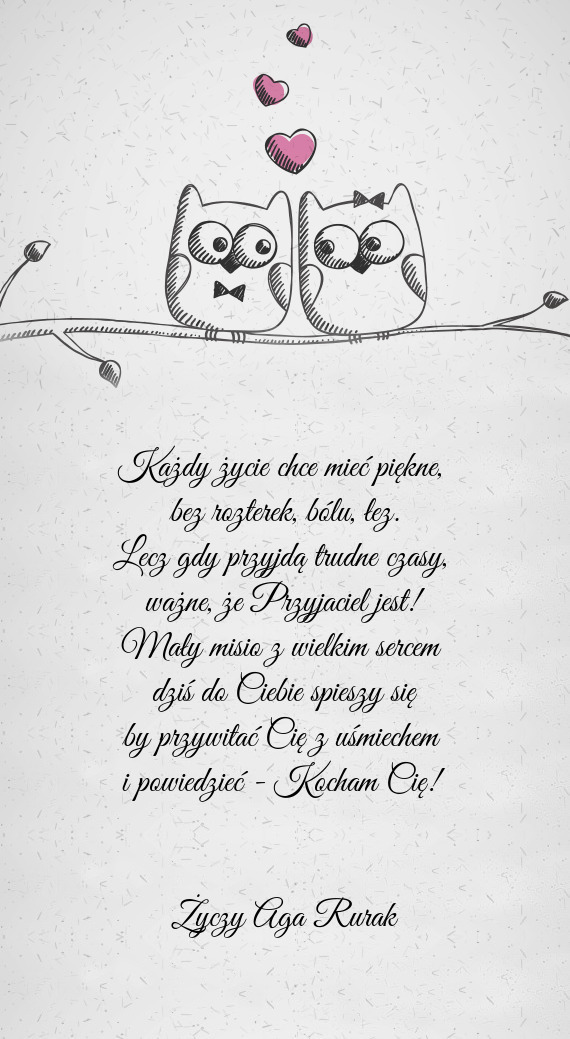 Każdy życie chce mieć piękne,
bez rozterek, bólu, łez.
Lecz gdy przyjdą trudne czasy,
ważne, że Przyjaciel jest!
Mały misio z wielkim sercem
dziś do Ciebie spieszy się
by przywitać Cię z uśmiechem
i powiedzieć - Kocham Cię!
Życzy Aga Rurak